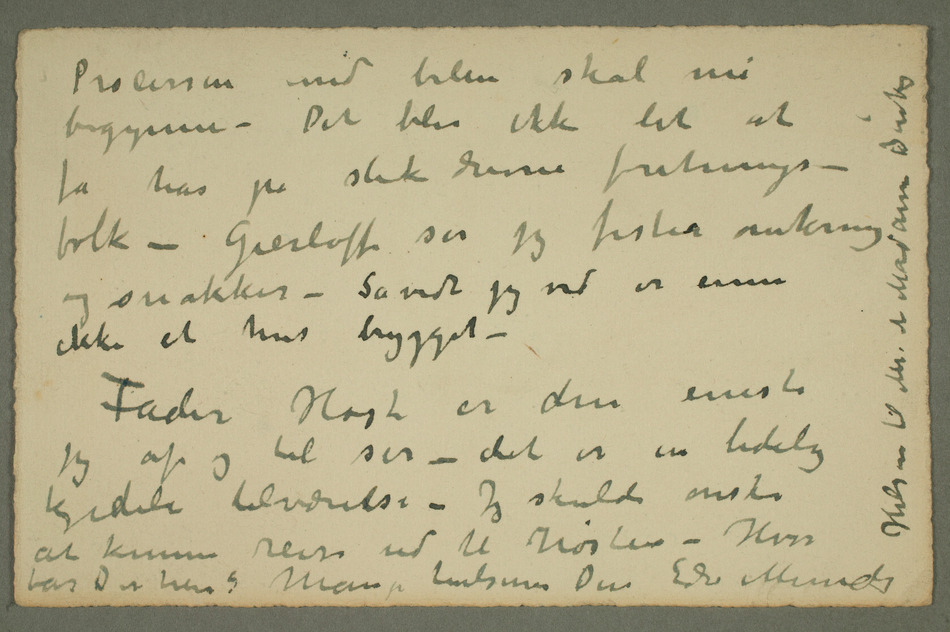 Processen med bilen skal nu
begynne – Det blir ikke let at
fa has på slik drevne fortnings–
folk – Gierløff ser jeg fester omkring
og snakker – Savidt jeg ved er ennu
ikke et hus bygget –
Fader Høst er den eneste
jeg af og til ser – det er en tidelig
kjedelig tilværelse – Jeg skulde ønske
at kunne reise ud til Høsten – Hvor
bor De hen? Mange hilsener Din Edv Munch
Hilsen til Mr. & Madam